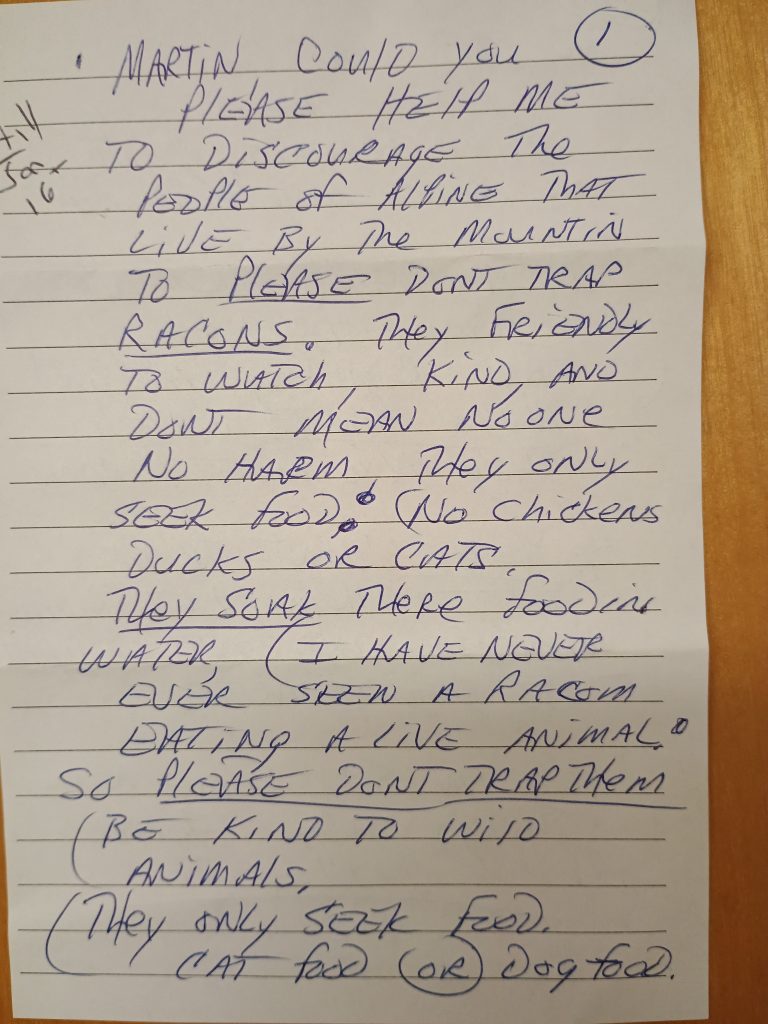 1
MARTIN COULD YOU
PLEASE HELP ME
TO DISCOURAGE The
PEOPLE of ALPINE THAT
LIVE By The MOUNTIN
TO PLEASE DONT TRAP
RACONS. They FRIENDLY
TO WATCH, KIND, AND
DONT MEAN NO ONE
NO HARM, They ONLY
SEEK FOOD. (No Chickens
DUCKS OR CATS.
They SOAK THERE food in
WATER, (I HAVE NEVER
EVER SEEN A RACOM
EATING A LIVE ANIMAL.
So PLEASE DONT TRAP Them
(BE KIND TO WILD
ANIMALS,
(They ONLY SEEK FOOD.
CAT food (OR) Dog food.
16